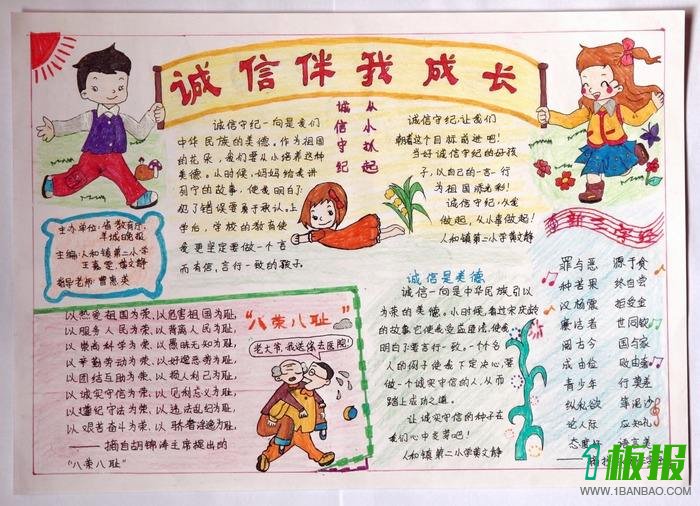 诚信伴我成长
从小抓起
诚信守纪
诚信守纪一向是我们
中华民族的美德。作为祖国
的花朵,我们要从小培养这种
美德。从小时候,妈妈给我讲
列宁的故事,使我明白了
犯了错误要勇于承认。上
学后,学校的教育使
我更坚定要做一个言
而有信,言行一致的孩子。
诚信守纪,让我们
朝着这个目标前进吧!
当好诚信守纪的好孩
子,以自己的一言一行
为祖国添光彩!
诚信守纪,从我
做起,从小事做起!
人和镇第二小学黄文静
主办单位:省教育厅、
羊城晚报
主编:人和镇第二小学
指导老师:曹惠英
以热爱祖国为荣、以危害祖国为耻,
以服务人民为荣、以背离人民为耻,
以崇尚科学为荣、以愚昧无知为耻,
以辛勤劳动为荣、以好逸恶劳为耻,
以团结互助为荣、以损人利己为耻,
以诚实守信为荣、以见利忘义为耻,
以遵纪守法为荣、以违法乱纪为耻,
以艰苦奋斗为荣、以骄奢淫逸为耻。
——摘自胡锦涛主席提出的
"八荣八耻"
"八荣八耻"
老大爷,我送您去医院!
诚信是美德
诚信一向是中华民族引以
为荣的美德。小时候,看过宋庆龄
的故事它使我受益匪浅,使我
明白了要言行一致。一个个名
人的例子使我下定决心,要
做一个诚实守信的人,从而
踏上成功之道。
让诚实守信的种子在
我们心中发芽吧!
人和镇第二小学黄文静
李新三字经
罪与恶 源于贪
种苦果 终自会
汉杨震 拒受金
廉洁者 世同钦
阅古今 国与家
成由俭 败由奢
青少年 行莫差
纵私欲
论人际 应知礼
态度好 语言美
1板报
WWW.1BANBAO.COM